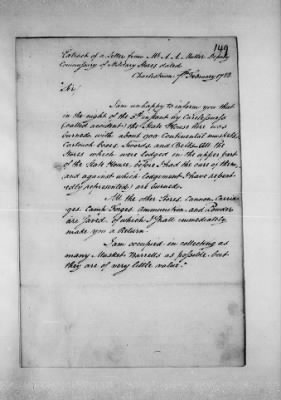 149
Extract of a Letter from Mr. A. A. Muller Deputy
Commissary of Military Stores dated
Charlestown 7th February 1788
Sir
I am unhappy to inform you that
in the night of the 5th instant by Carelessness
(called accident) the State House here was
burned with about 1700 Continental muskets,
Cartouch boxes, Swords and Belts. All the
Stores which were lodged in the upper part
of the State House, before I had the care of them,
and against which Lodgement I have repeat-
edly represented, are burned.
All the other Stores, Cannon, Carria-
ges, Camp Forges, Ammunition and Powder
are saved. of which I shall immediately
make you a Return.
I am occupied in collecting as
many Musket Barrells as possible, but
they are of very little value.